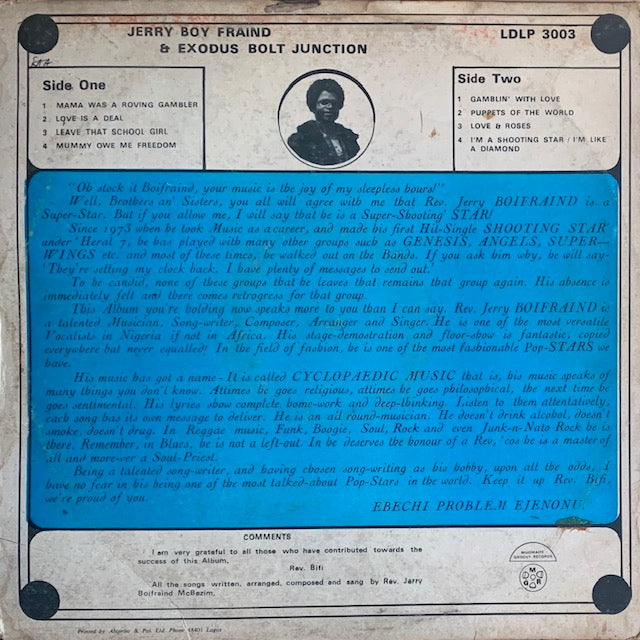 JERRY BOY FRAIND
& EXODUS BOLT JUNCTION
LDLP 3003
Side One
1 MAMA WAS A ROVING GAMBLER
2 LOVE IS A DEAL
3 LEAVE THAT SCHOOL GIRL
4 MUMMY OWE ME FREEDOM
Side Two
1 GAMBLIN' WITH LOVE
2 PUPPETS OF THE WORLD
3 LOVE & ROSES
4 I'M A SHOOTING STAR / I'M LIKE
A DIAMOND
"Oh stock it Boifraind, your music is the joy of my sleepless hours!"
Well, Brothers an' Sisters, you all will agree with me that Rev. Jerry BOIFRAIND is a
Super-Star. But if you allow me, I will say that he is a Super-Shooting' STAR!
Since 1973 when he took Music as a career, and made his first Hit-Single SHOOTING STAR
under' Heral 7, he has played with many other groups such as GENESIS, ANGELS, SUPER—
WINGS etc. and most of these times, he walked out on the Bands. If you ask him why, he will say-
'They're setting my clock back, I have plenty of messages to send out.'
To be candid, none of these groups that he leaves that remains that group again. His absence is
immediately felt and there comes retrogress for that group.
This Album you're holding now speaks more to you than I can say. Rev. Jerry BOIFRAIND is
a talented Musician, Song-writer, Composer, Arranger and Singer. He is one of the most versatile
Vocalists in Nigeria if not in Africa. His stage-demostration and floor-show is fantastic, copied
everywhere but never equalled! In the field of fashion, he is one of the most fashionable Pop-STARS we
have.
His music has got a name - It is called CYCLOPAEDIC MUSIC that is, his music speaks of
many things you don't know. Attimes he goes religious, attimes he goes philosophical, the next time he
goes sentimental. His lyrics show complete home-work and deep-thinking. Listen to them attentatively,
each song has its own message to deliver. He is an all round-musician. He doesn't drink alcohol, doesn't
smoke, doesn't drug. In Reggae music, Funk, Boogie, Soul, Rock and even Junk-n-Nato Rock he is
there. Remember, in Blues, he is not a left-out. In he deserves the honour of a Rev, 'cos he is a master of
all and more-ver a Soul-Priest.
Being a talented song-writer, and having chosen song-writing as his hobby, upon all the odds, I
have no fear in his being one of the most talked-about Pop-Stars in the world. Keep it up Rev. Bifi,
we're proud of you.
EBECHI PROBLEM EJENONU.
COMMENTS
I am very grateful to all those who have contributed towards the
success of this Album,
Rev. Bifi
All the songs written, arranged, composed and sang by Rev. Jerry
Boifraind McBezim,
GROOVY RECORDS
M
G R
Printed by Lagos